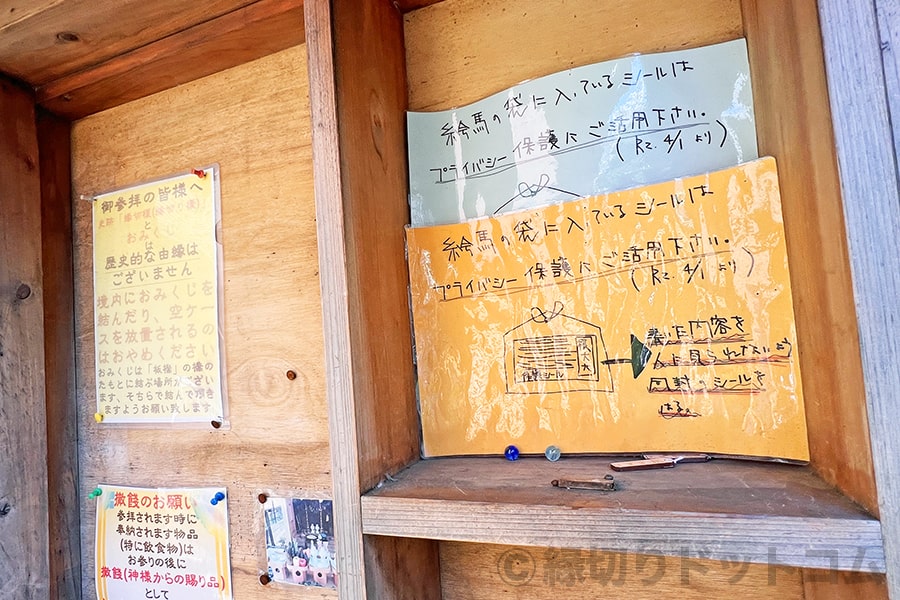 御参拝の皆様へ
史跡「縁切榎(縁切り榎)」
と
おみくじ
は
歴史的な由縁は
ございません
境内におみくじを
結んだり、空ケー
スを放置されるの
はおやめください
おみくじは「板橋」の橋の
たもとに結ぶ場所がござい
ます、そちらで結んで頂き
ますようお願い致します
撒饌のお願い
参拝されます時に
奉納されます物品
(特に飲食物)は
お参りの後に
撒饌(神様からの賜り品)
として
絵馬の袋に入っているシールは
プライバシー保護にご活用下さい。
(R2. 4/1 より)
絵馬の袋に入っているシールは
プライバシー保護にご活用下さい。
(R2. 4/1 より)
保護シール
書いた内容を
人に見られないよう
同封のシールを
はる。
©縁切りドットコム